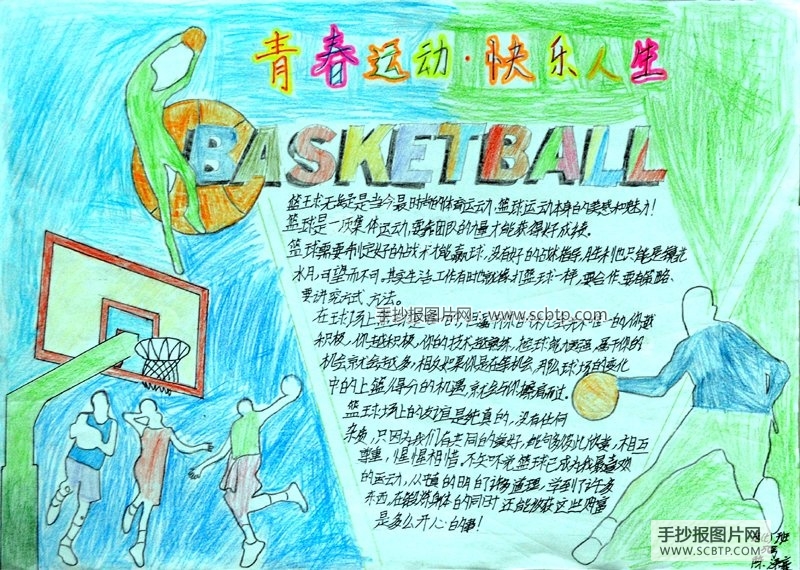 青春运动·快乐人生
BASKETBALL
篮球无疑是当今最时尚的体育运动,篮球运动本身的美感和魅力!
篮球是一项集体运动,要靠团队的力量才能获得好成绩。
篮球需要制定好的战术才能赢球,没有好的战术指导,胜利也只能是镜花
水月,可望而不可。其实生活工作有时也就像打篮球一样,要合作,要有策略、
要讲究方式、方法。
手抄报图片网:www.scbtp.com
在球场上
积极,你越积极,你的技术越
机会就会越多,相反如果你是在等机会,那么球场的变化
中的上篮得分的机遇,就会与你擦肩而过。
篮球场上的友谊是纯真的,没有任何
杂质,只因为我们有共同的爱好,能够彼此欣赏,相互
尊重,惺惺相惜,不知不觉篮球已成为我最喜欢
的运动,从中真的明白了许多道理,学到了许多
东西,在锻炼身体的同时还能够获这些财富
是多么开心的事!
班
手抄报图片网
WWW.SCBTP.COM